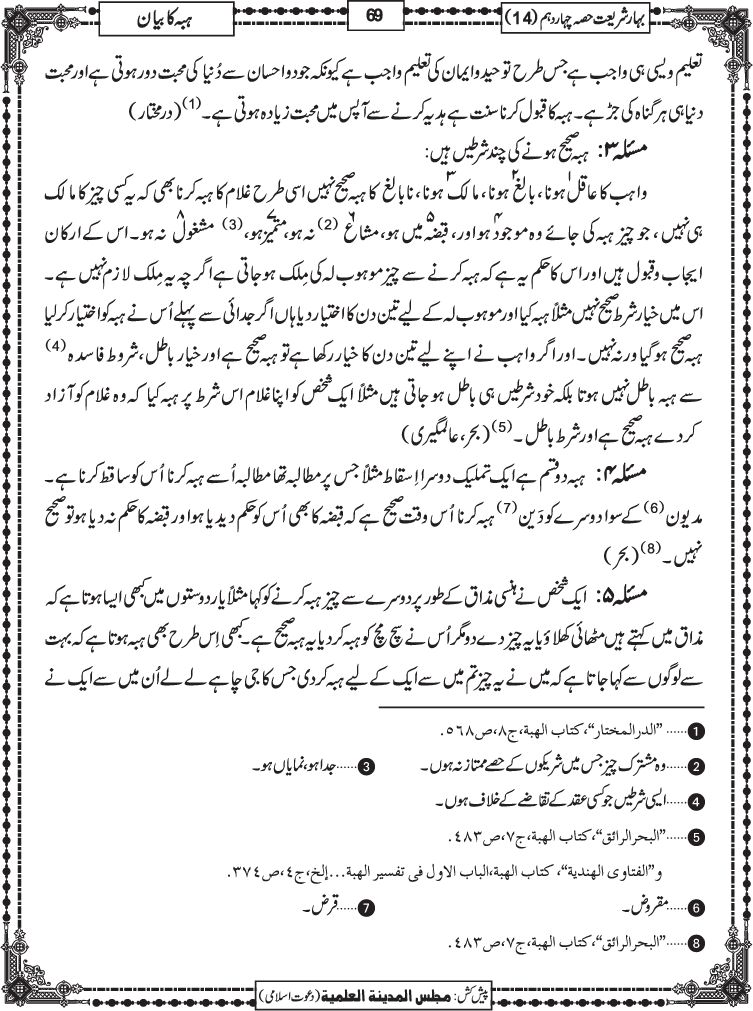 بہارِ شریعت حصہ چہاردہم (14)
69
ہبہ کا بیان
تعلیم ویسی ہی واجب ہے جس طرح توحید و ایمان کی تعلیم واجب ہے کیونکہ جود و احسان سے دُنیا کی محبت دور ہوتی ہے اور محبت
دنیا ہی ہر گناہ کی جڑ ہے۔ ہبہ کا قبول کرنا سنت ہے ہدیہ کرنے سے آپس میں محبت زیادہ ہوتی ہے۔(1) (درمختار)
مسئلہ ۳: ہبہ صحیح ہونے کی چند شرطیں ہیں:
واہب کا عاقل۱ ہونا، بالغ۲ ہونا، مالک۳ ہونا، نابالغ کا ہبہ صحیح نہیں اسی طرح غلام کا ہبہ کرنا بھی کہ یہ کسی چیز کا مالک
ہی نہیں، جو چیز ہبہ کی جائے وہ موجود۴ ہو اور، قبضہ۵ میں ہو، مشاع۶ (2) نہ ہو، متمیز۷ ہو، (3) مشغول۸ نہ ہو۔ اس کے ارکان
ایجاب و قبول ہیں اور اس کا حکم یہ ہے کہ ہبہ کرنے سے چیز موہوب لہ کی مِلک ہو جاتی ہے اگرچہ یہ مِلک لازم نہیں ہے۔
اس میں خیار شرط صحیح نہیں مثلاً ہبہ کیا اور موہوب لہ کے لیے تین دن کا اختیار دیا ہاں اگر جدائی سے پہلے اُس نے ہبہ کو اختیار کر لیا
ہبہ صحیح ہو گیا ورنہ نہیں۔ اور اگر واہب نے اپنے لیے تین دن کا خیار رکھا ہے تو ہبہ صحیح ہے اور خیار باطل، شروط فاسدہ (4)
سے ہبہ باطل نہیں ہوتا بلکہ خود شرطیں ہی باطل ہو جاتی ہیں مثلاً ایک شخص کو اپنا غلام اس شرط پر ہبہ کیا کہ وہ غلام کو آزاد
کردے ہبہ صحیح ہے اور شرط باطل۔(5) (بحر، عالمگیری)
مسئلہ ۴: ہبہ دو قسم ہے ایک تملیک دوسرا اِسقاط مثلاً جس پر مطالبہ تھا مطالبہ اُسے ہبہ کرنا اُس کو ساقط کرنا ہے۔
مدیون (6) کے سوا دوسرے کو دَین (7) ہبہ کرنا اُس وقت صحیح ہے کہ قبضہ کا بھی اُس کو حکم دیدیا ہو اور قبضہ کا حکم نہ دیا ہو تو صحیح
نہیں۔(8) (بحر)
مسئلہ ۵: ایک شخص نے ہنسی مذاق کے طور پر دوسرے سے چیز ہبہ کرنے کو کہا مثلاً یار دوستوں میں کبھی ایسا ہوتا ہے کہ
مذاق میں کہتے ہیں مٹھائی کھلاؤ یا یہ چیز دے دو مگر اُس نے سچ مچ کو ہبہ کر دیا یہ ہبہ صحیح ہے۔ کبھی اِس طرح بھی ہبہ ہوتا ہے کہ بہت
سے لوگوں سے کہا جاتا ہے کہ میں نے یہ چیز تم میں سے ایک کے لیے ہبہ کردی جس کا جی چاہے لے لے اُن میں سے ایک نے
1 ......"الدرالمختار"، کتاب الھبة، ج۸، ص٥٦٨.
2 ......وہ مشترک چیز جس میں شریکوں کے حصے ممتاز نہ ہوں۔ 3 ......جدا ہو، نمایاں ہو۔
4 ......ایسی شرطیں جو کسی عقد کے تقاضے کے خلاف ہوں۔
5 ......"البحرالرائق"، کتاب الھبة، ج۷، ص٤٨٣.
و"الفتاوى الهندية"، کتاب الھبة، الباب الاول فی تفسیر الھبة...إلخ، ج٤، ص٣٧٤.
6 ......مقروض۔ 7 ......قرض۔
8 ......"البحرالرائق"، کتاب الھبة، ج۷، ص٤٨٣.
پیش کش: مجلس المدینة العلمیة (دعوتِ اسلامی)